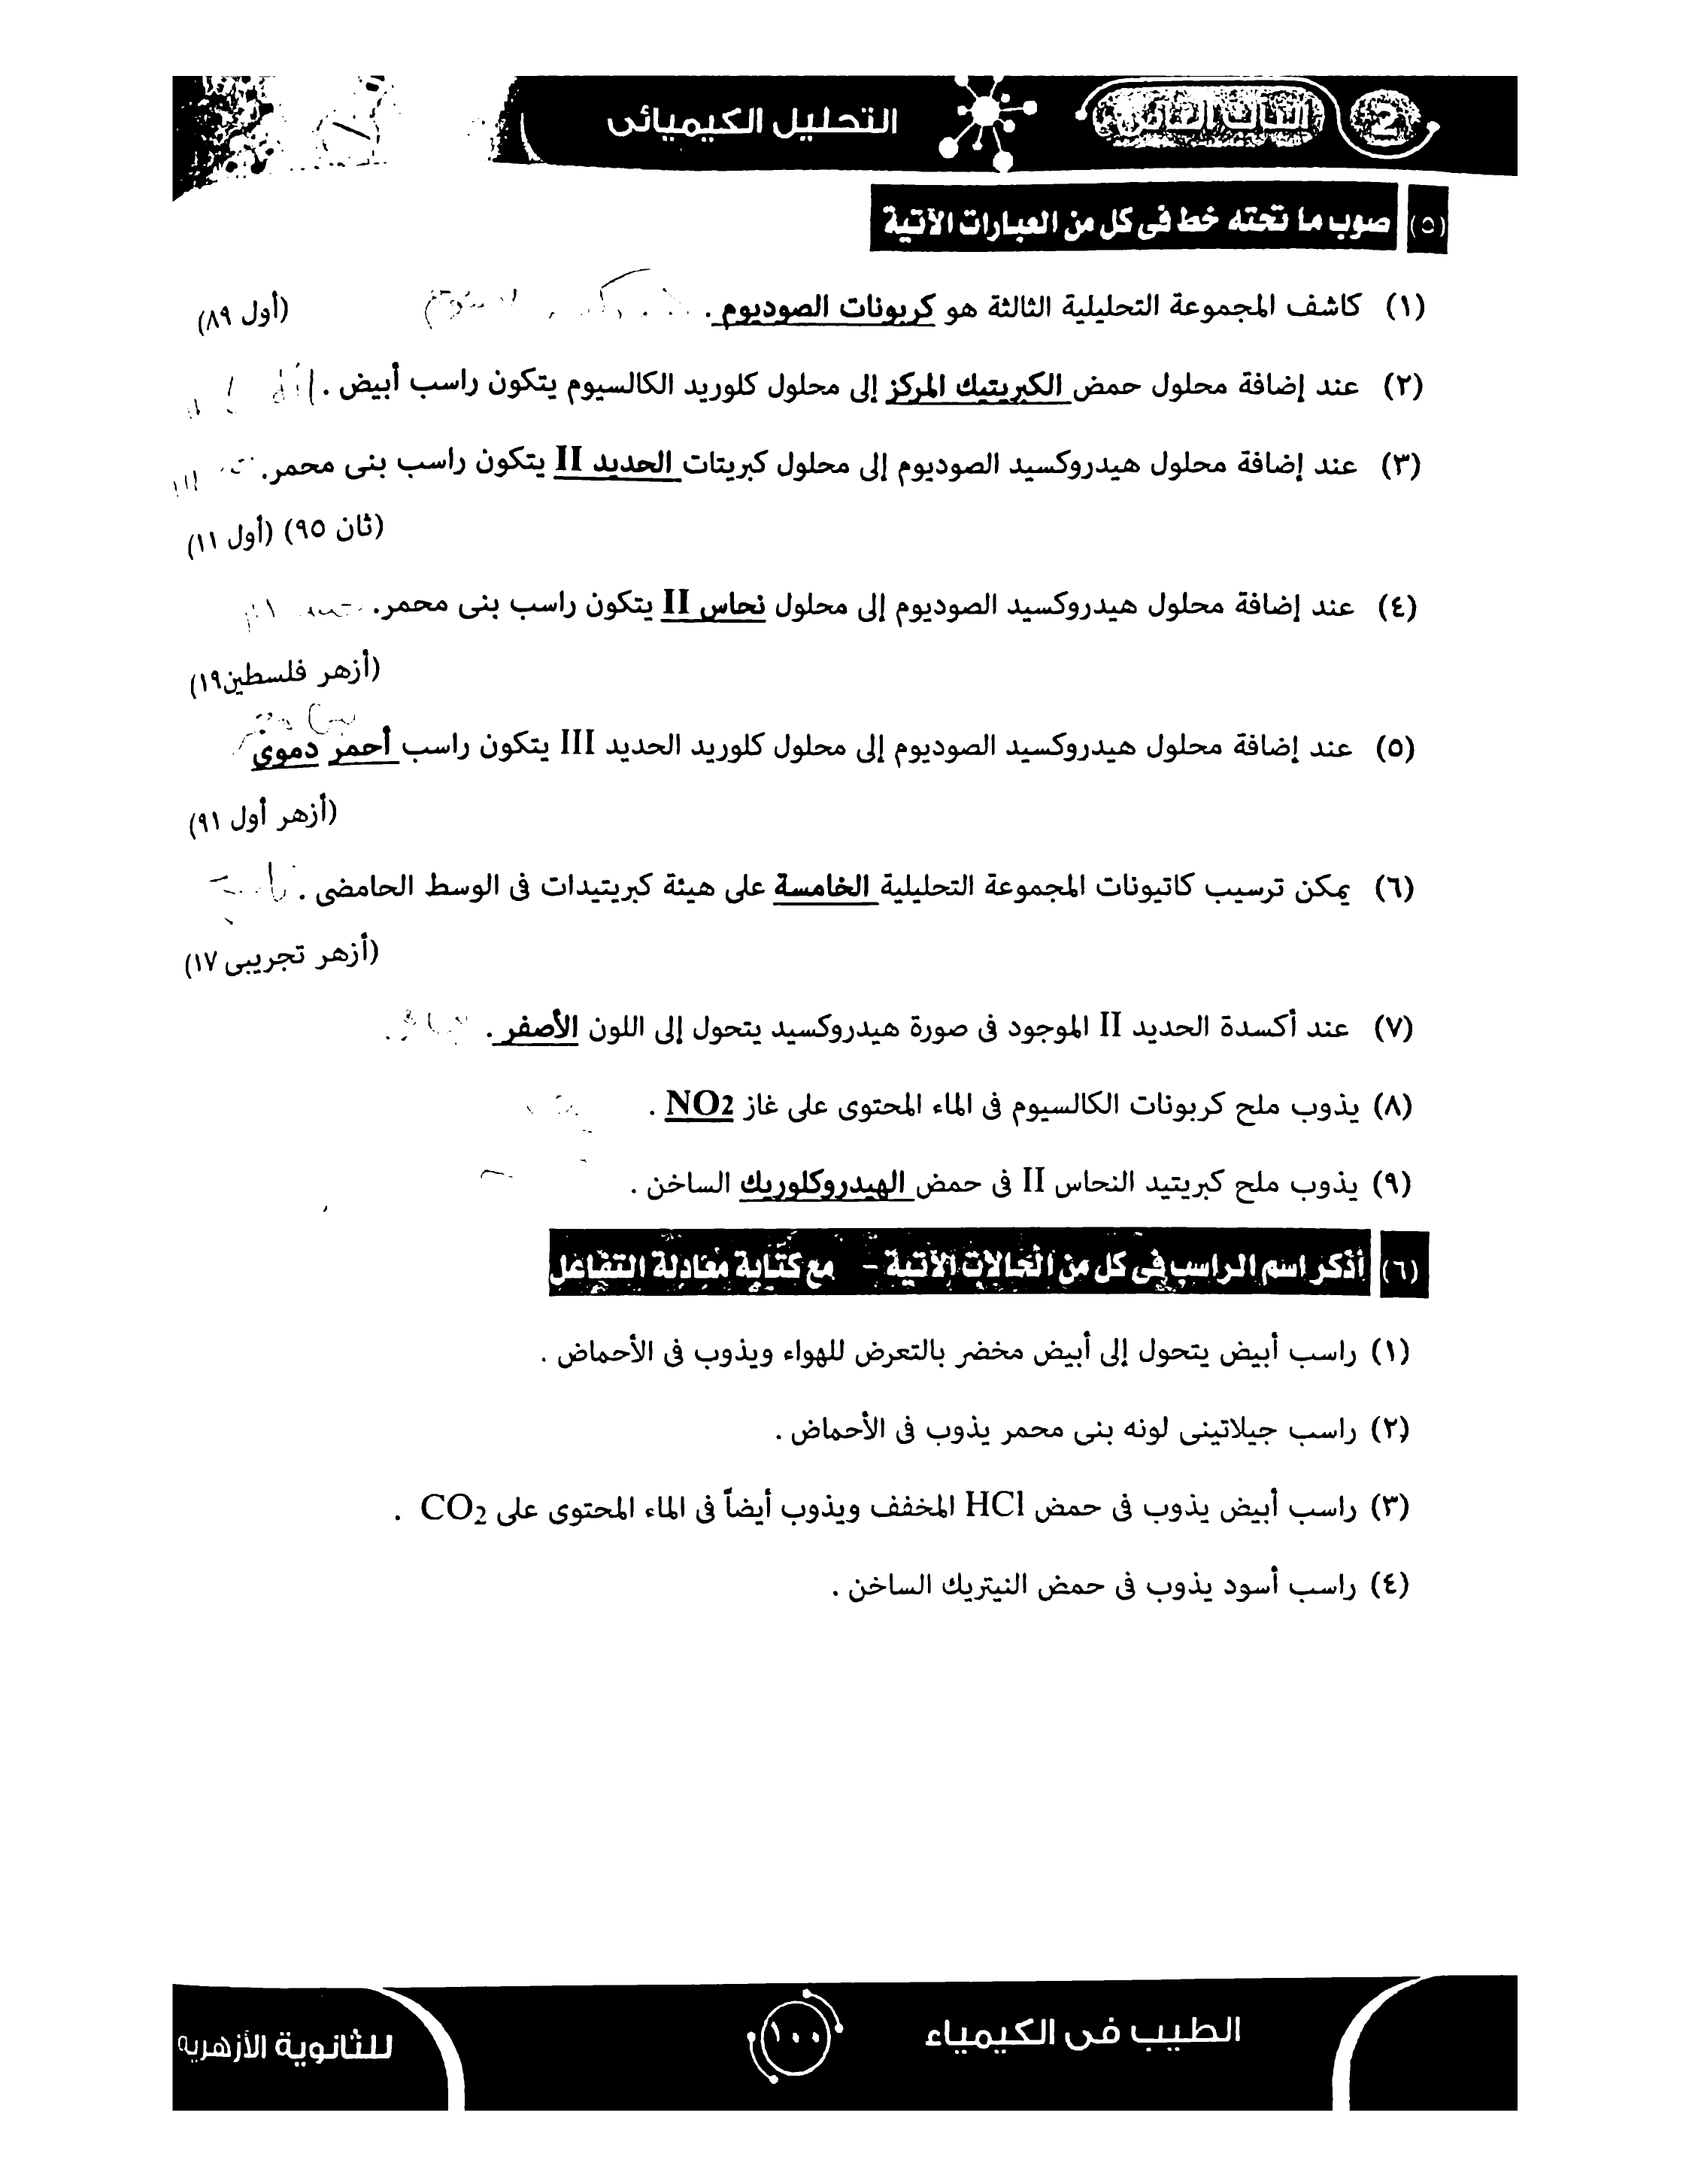 2
التحليل الكيميائى
(٥) صوب ما تحته خط فى كل من العبارات الآتية
(١) كاشف المجموعة التحليلية الثالثة هو كربونات الصوديوم .
(أول ٨٩)
(٢) عند إضافة محلول حمض الكبريتيك المركز إلى محلول كلوريد الكالسيوم يتكون راسب أبيض .
(٣) عند إضافة محلول هيدروكسيد الصوديوم إلى محلول كبريتات الحديد II يتكون راسب بنى محمر.
(ثان ٩٥) (أول ١١)
(٤) عند إضافة محلول هيدروكسيد الصوديوم إلى محلول نحاس II يتكون راسب بنى محمر.
(أزهر فلسطين١٩)
(٥) عند إضافة محلول هيدروكسيد الصوديوم إلى محلول كلوريد الحديد III يتكون راسب أحمر دموى
(أزهر أول ٩١)
(٦) يمكن ترسيب كاتيونات المجموعة التحليلية الخامسة على هيئة كبريتيدات فى الوسط الحامضى .
(أزهر تجريبى ١٧)
(٧) عند أكسدة الحديد II الموجود فى صورة هيدروكسيد يتحول إلى اللون الأصفر .
(٨) يذوب ملح كربونات الكالسيوم فى الماء المحتوى على غاز NO2 .
(٩) يذوب ملح كبريتيد النحاس II فى حمض الهيدروكلوريك الساخن .
(٦) أذكر اسم الراسب فى كل من الحالات الآتية - مع كتابة معادلة التفاعل
(١) راسب أبيض يتحول إلى أبيض مخضر بالتعرض للهواء ويذوب فى الأحماض .
(٢) راسب جيلاتينى لونه بنى محمر يذوب فى الأحماض .
(٣) راسب أبيض يذوب فى حمض HCl المخفف ويذوب أيضاً فى الماء المحتوى على CO2 .
(٤) راسب أسود يذوب فى حمض النيتريك الساخن .
الطبيب فى الكيمياء
١٠٠
للثانوية الأزهرية